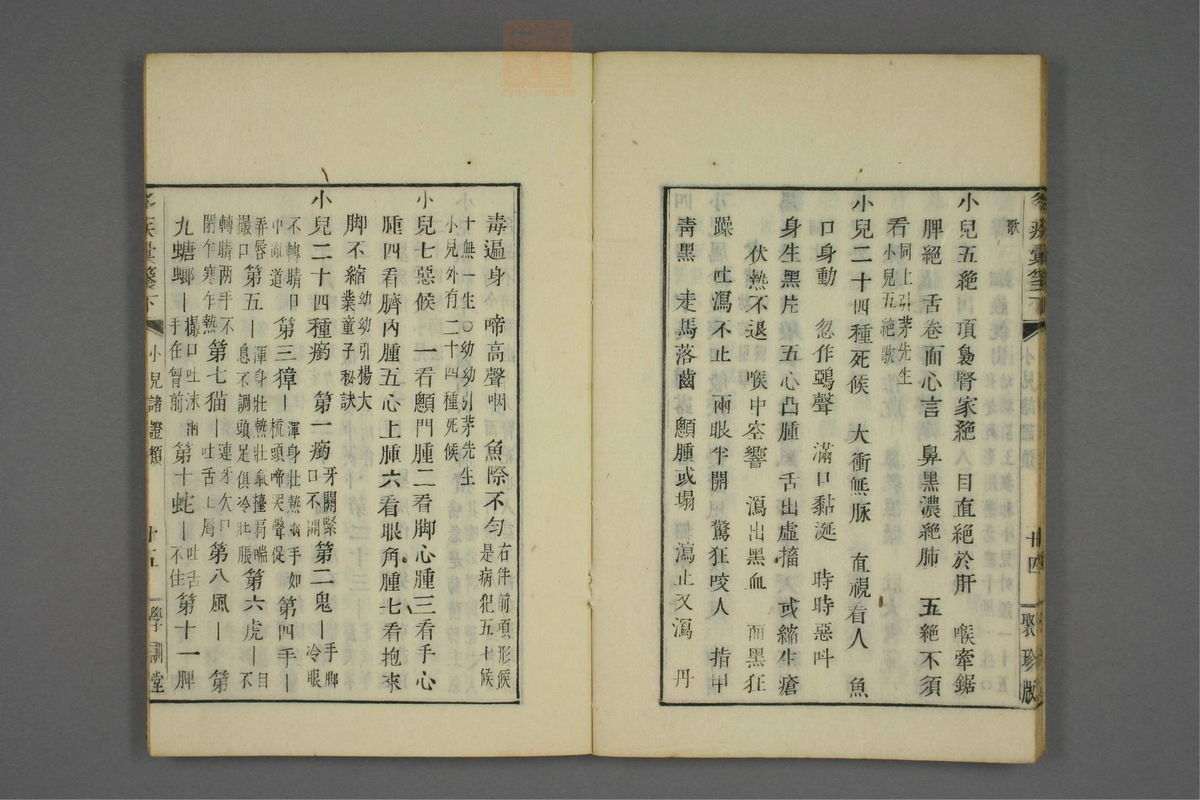 歌
小兒五絶　頂㬠腎家絶　目直絶於肝　喉牽鋸
脾絶　舌卷面心言　鼻黑濃絶肺　五絶不須
看
同上引芽先生
小兒五絶歌
小兒二十四種死候　大衝無脉　直視看人　魚
口身動　忽作鵶聲　滿口黏涎　時時惡叫
身生黑片　五心凸腫　舌出虛搐　或縮生瘡
伏熱不退　喉中空響　瀉出黑血　面黑狂
躁　吐瀉不止　兩眼半開　驚狂咬人　指甲
靑黑　走馬落齒　顖腫或塌　瀉止又瀉　丹
小兒諸證類　十四　聚珍版
毒遍身　啼高聲咽　魚際不勻
右件前項形候
是病犯五十候
十無一生○幼幼引芽先生
小兒外有二十四種死候
小兒七惡候　一看顖門腫二看脚心腫三看手心
腫四看臍內腫五心上腫六看眼角腫七看抱來
脚不縮
幼幼引楊大
業童子秘訣
小兒二十四種癇　第一癇
牙關緊
口不開
第二鬼｜
手脚
冷眼
不轉睛口
中亂道
第三獐｜
渾身壯熱兩手如
梳頭啼哭聲促
第四手｜
弄唇
撮口
第五｜
渾身壯熱壯氣擡肩喘目
息不調頭足俱冷肚脹
第六虎｜
不
轉睛兩手不
閉乍寒乍熱
第七猫｜
連牙欠口
吐舌上唇
第八風｜　第
九螗螂｜
撮口吐沫兩
手在胷前
第十蛇｜
吐舌
不住
第十一脾
小兒諸證類　十五　學訓堂